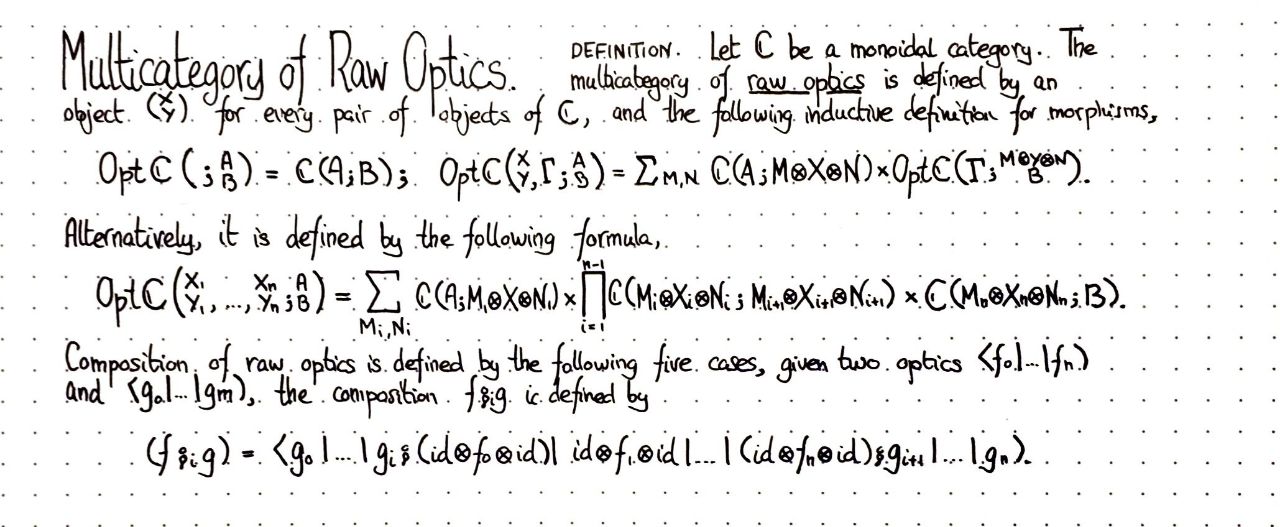 Multicategory of Raw Optics. DEFINITION. Let ℂ be a monoidal category. The
multicategory of raw optics is defined by an
object (X Y) for every pair of objects of ℂ, and the following inductive definition for morphisms,
Optℂ(; A B) = ℂ(A;B); Optℂ(X Y, Γ; A B) = Σ M,N ℂ(A; M⊗X⊗N) × Optℂ(Γ; M⊗Y⊗N B).
Alternatively, it is defined by the following formula,
Optℂ(X₁ Y₁, ..., Xₙ Yₙ; A B) = Σ Mᵢ,Nᵢ ℂ(A; M₁⊗X⊗N₁) × ∏ i=1 n-1 ℂ(Mᵢ⊗Xᵢ⊗Nᵢ; Mᵢ₊₁⊗Xᵢ₊₁⊗Nᵢ₊₁) × ℂ(Mₙ⊗Xₙ⊗Nₙ; B).
Composition of raw optics is defined by the following five cases, given two optics ⟨f₀|...|fₙ⟩
and ⟨g₀|...|gm⟩, the composition f⨾ᵢg is defined by
(f⨾ᵢg) = ⟨g₀|...|gᵢ⨾(id⊗f₀⊗id)| id⊗f₁⊗id|...|(id⊗fₙ⊗id)⨾gᵢ₊₁|...|gₙ⟩.